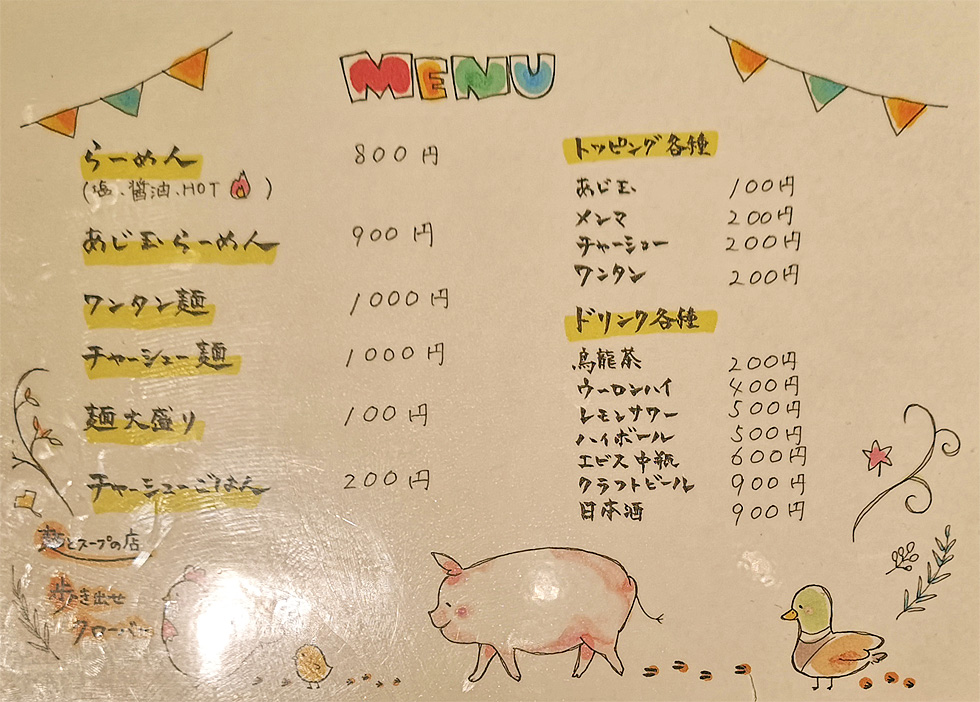 MENU
らーめん 800円
(塩、醤油、HOT)
あじ玉らーめん 900円
ワンタン麺 1000円
チャーシュー麺 1000円
麺大盛り 100円
チャーシューごはん 200円
トッピング各種
あじ玉 100円
メンマ 200円
チャーシュー 200円
ワンタン 200円
ドリンク各種
烏龍茶 200円
ウーロンハイ 400円
レモンサワー 500円
ハイボール 500円
エビス中瓶 600円
クラフトビール 900円
日本酒 900円
麺とスープの店
歩き出せ
クローバー